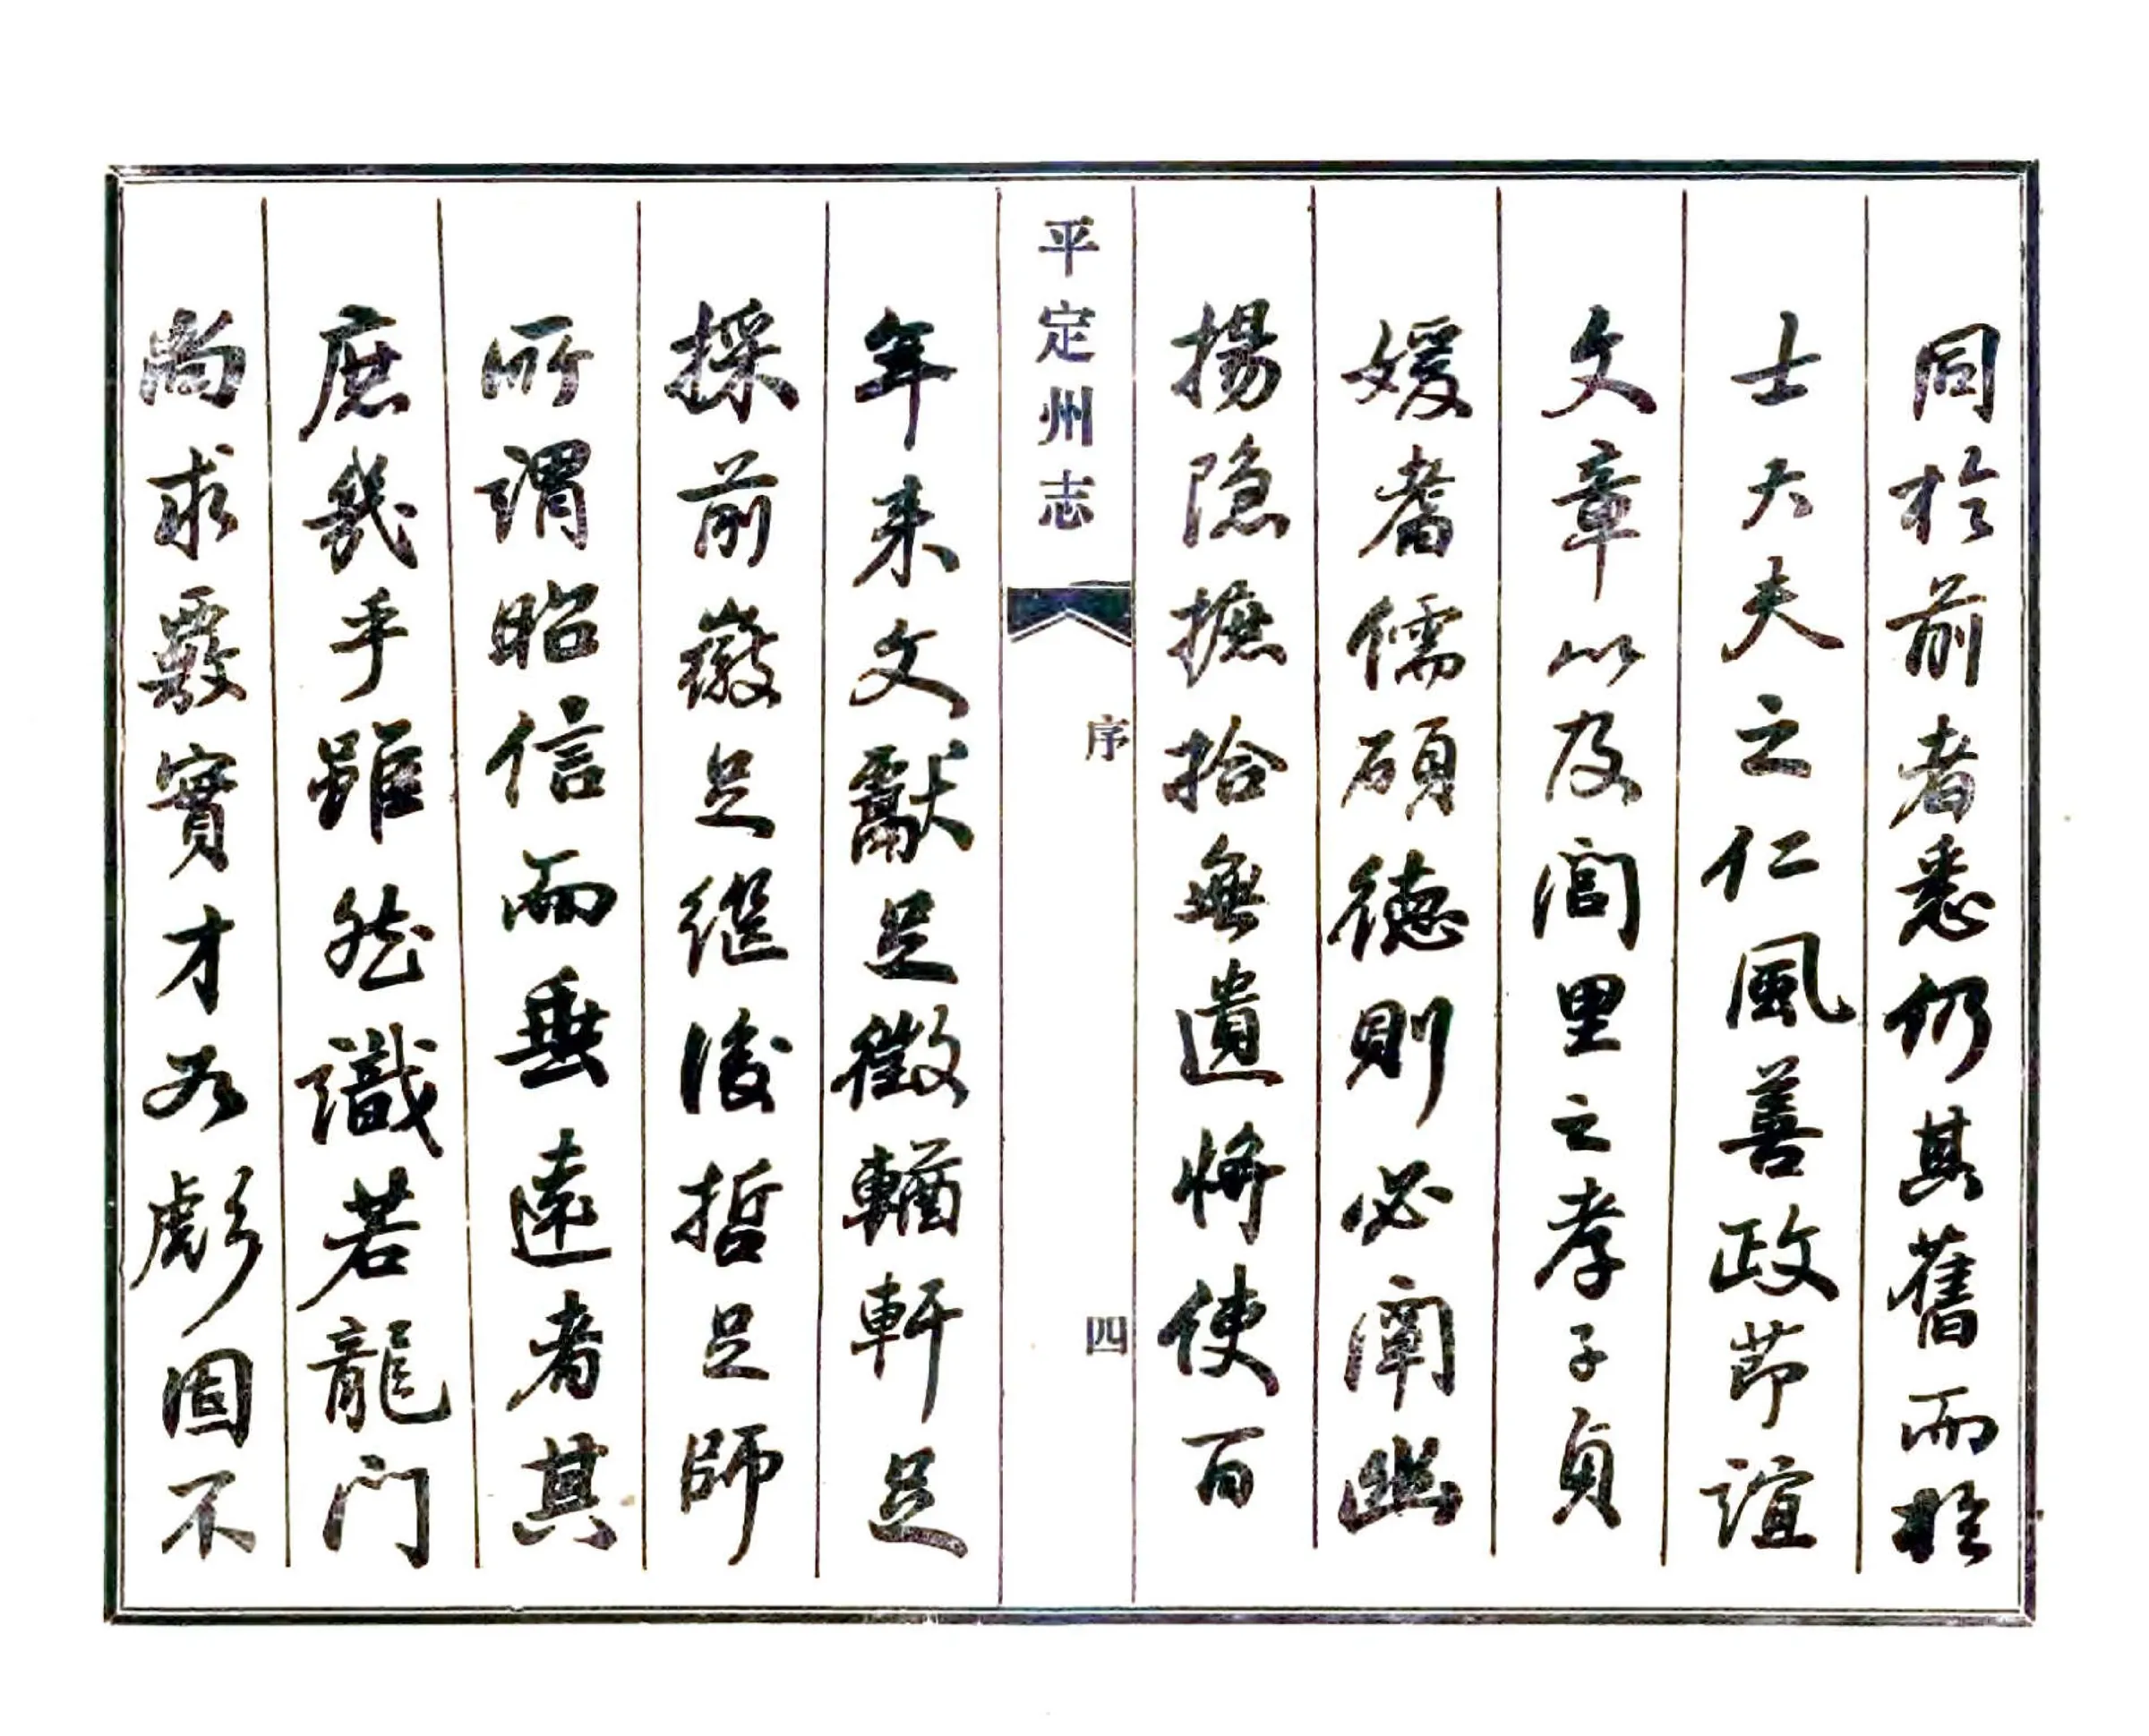 同於前者悉仍其舊而於
士大夫之仁風善政節誼
文章以及閭里之孝子貞
媛耆儒碩德則必闡幽
揚隱摭拾無遺將使百
平定州志
序
四
年來文獻足徵輶軒足
採前徽足繼後哲足師
所謂昭信而垂遠者其
庶幾乎雖然識若龍门
尚求覈實才如彪固不